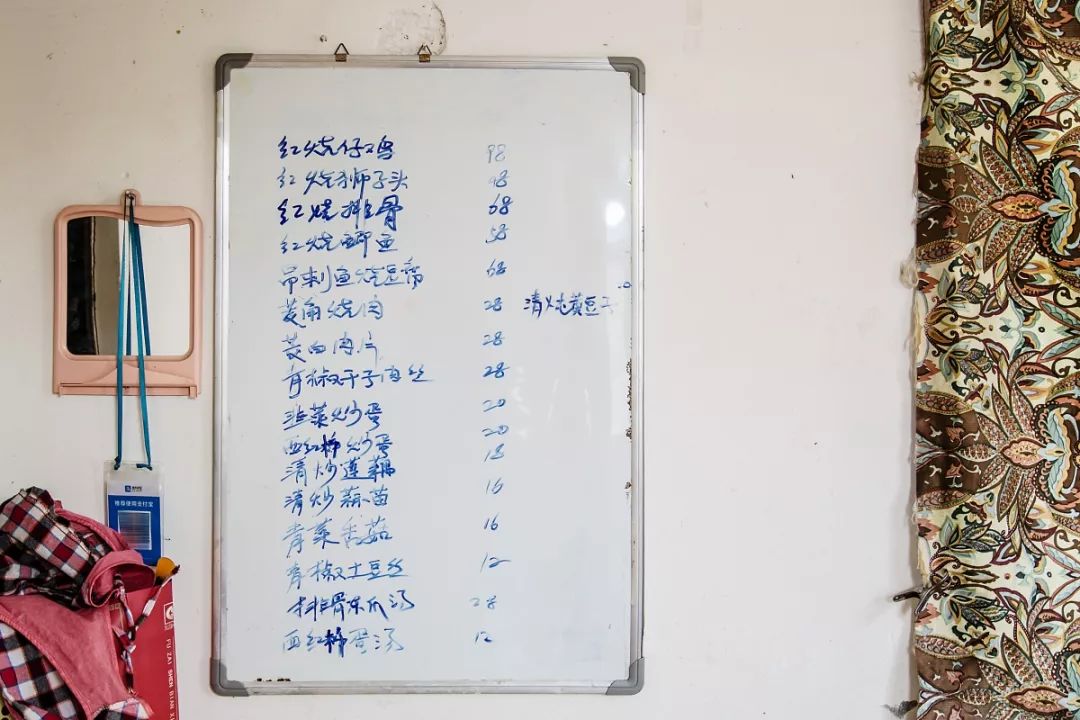 红烧仔鸡 98
红烧狮子头 98
红烧排骨 68
红烧鲫鱼 58
吊刺鱼烧豆腐 68
菱角烧肉 28 清炖黄豆子
茭白肉片 28
青椒干子肉丝 28
韭菜炒蛋 20
西红柿炒蛋 20
清炒莲藕 18
清炒蒜苗 16
青菜香菇 16
青椒土豆丝 12
排骨冬瓜汤 28
西红柿蛋汤 12
推荐使用支付宝
FU ZAI SHEN BIAN